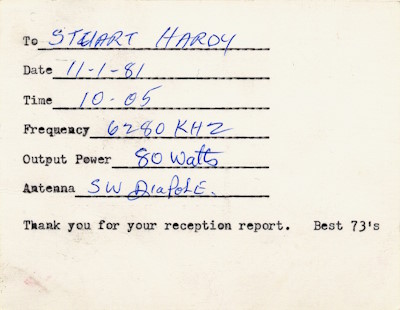 To STUART HARDY
Date 11-1-81
Time 10-05
Frequency 6280 KHZ
Output Power 80 Watts
Antenna SW DiaPolE.
Thank you for your reception report. Best 73's